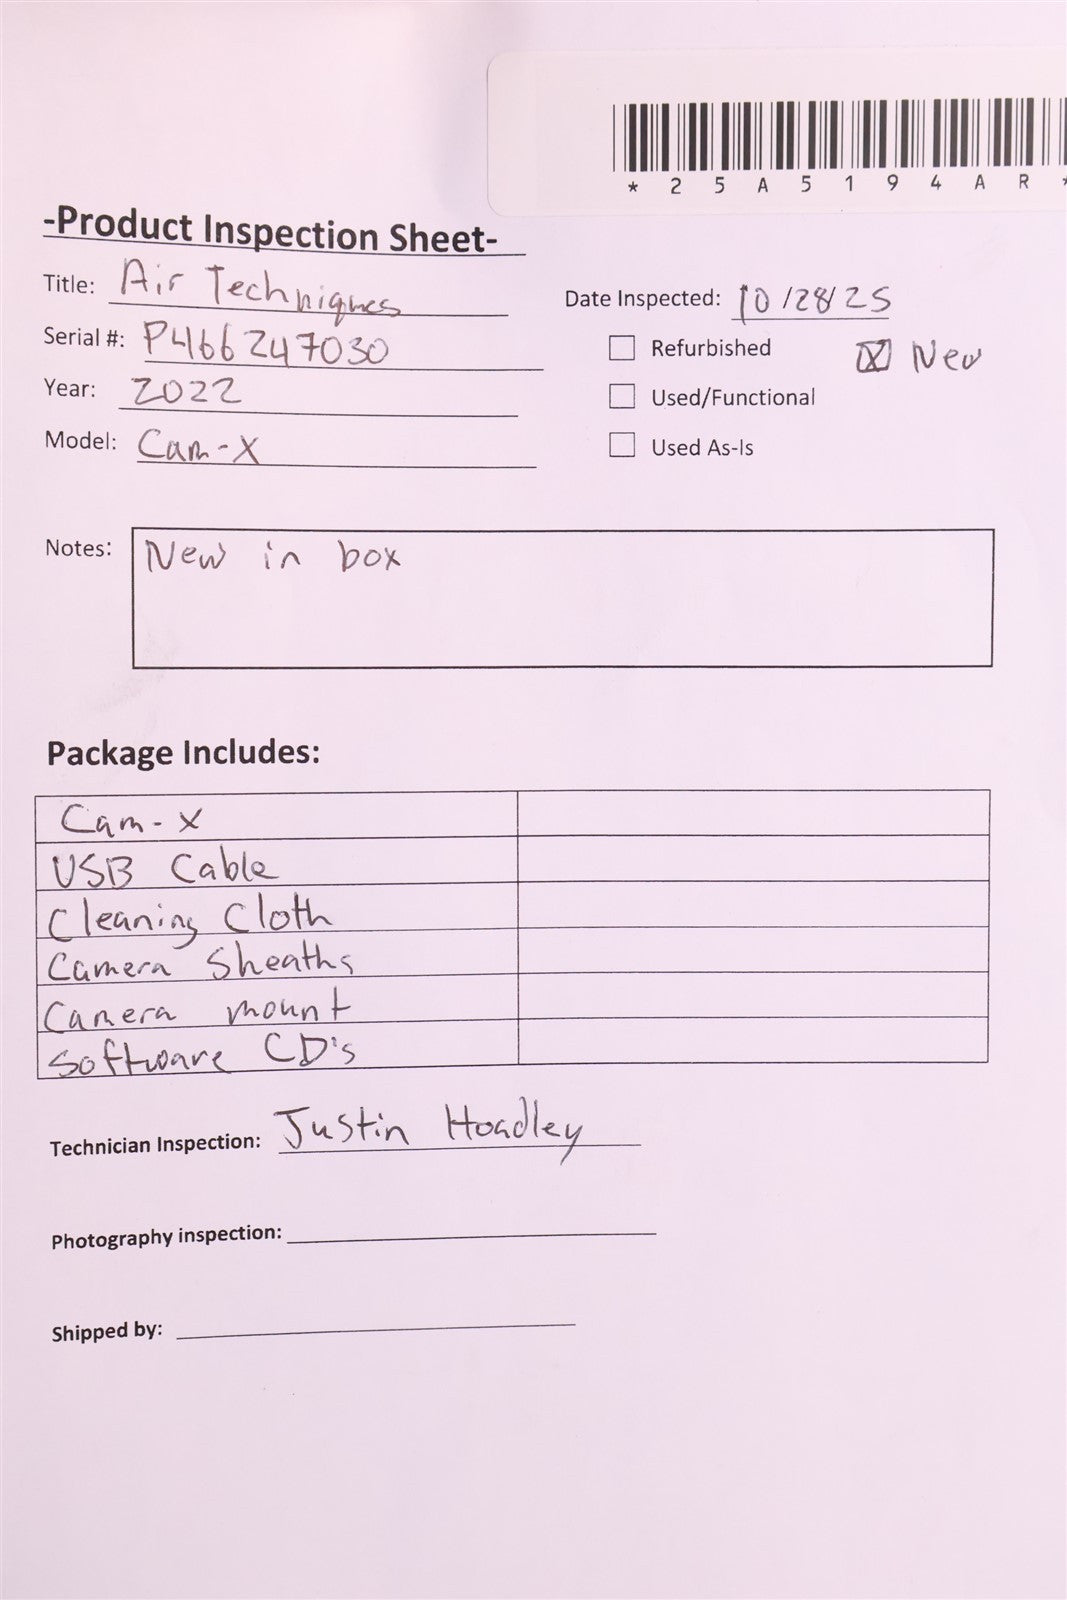 * 2 5 A 5 1 9 4 A R *
-Product Inspection Sheet-
Title: Air Techniques
Date Inspected: 10/28/25
Serial #: P466247030
Refurbished
New
Year: 2022
Used/Functional
Model: Cam-X
Used As-Is
Notes: New in box
Package Includes:
Cam-x
USB Cable
Cleaning Cloth
Camera Sheaths
Camera mount
Software CD's
Technician Inspection: Justin Hoadley
Photography inspection:
Shipped by: